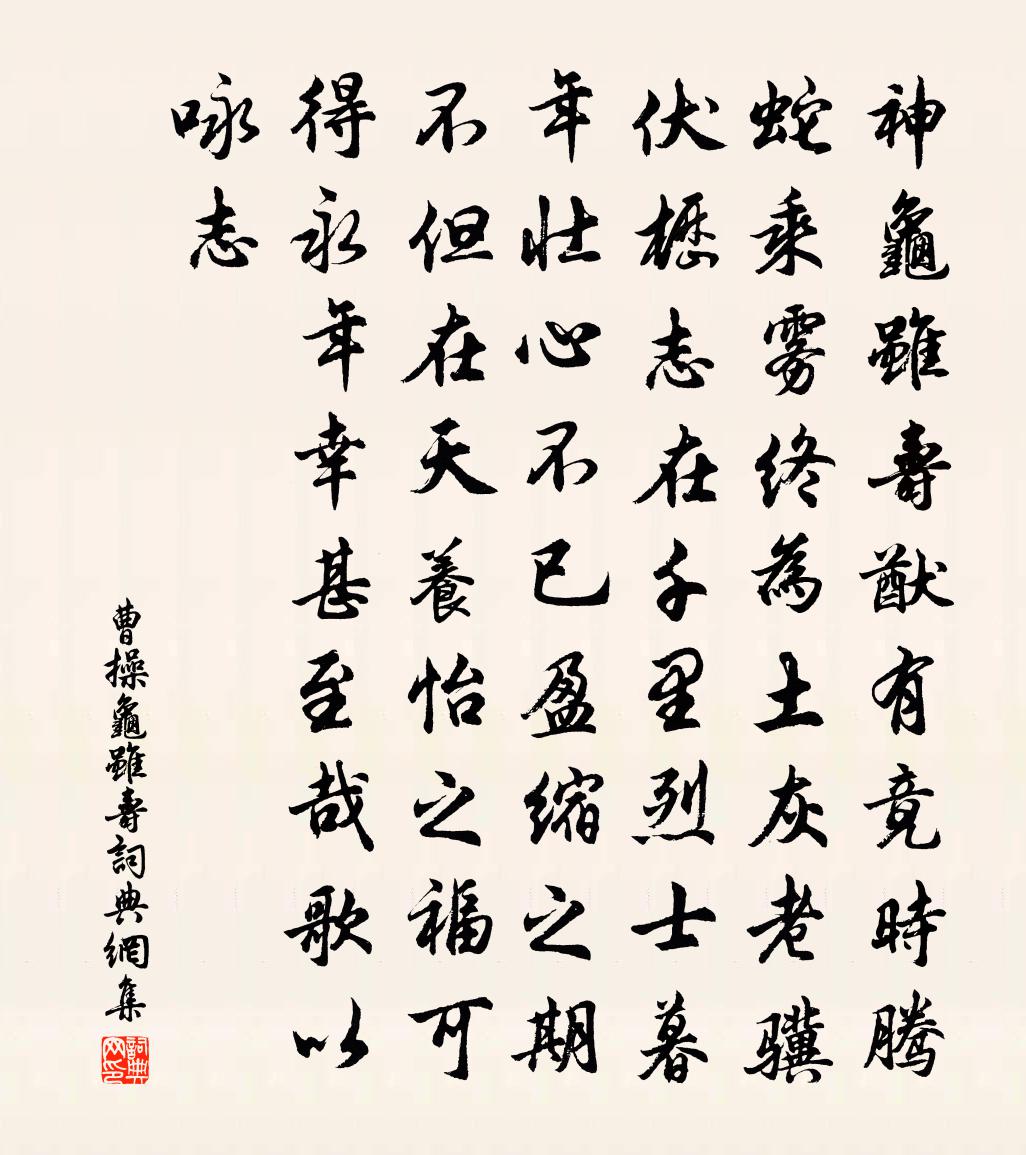 神龜雖壽猷有竟時騰
蛇乘雾終為土灰老驥
伏櫪志在千里烈士暮
年壯心不已盈縮之期
不但在天養怡之福可
得永年幸甚至哉歌以
咏志
曹操龜雖壽詞典網集
詞典网印